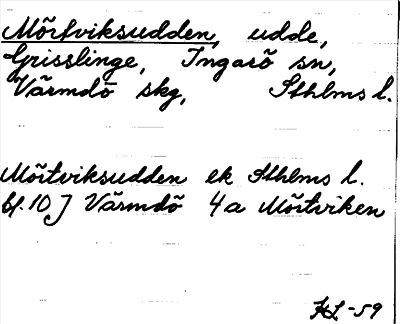 Mörtviksudden, udde,
Grisslinge, Ingarö sn,
Värmdö skg, Sthlms l.
Mörtviksudden ek Sthlms l.
bl. 10 J Värmdö 4a Mörtviken
KL-59